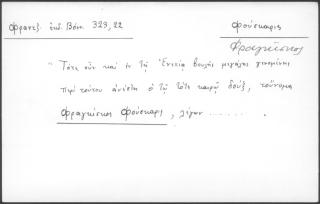 Φραντζ. ἐκδ. Βόν. 323, 22
φούσκαρις
Φραγκῖσκος
" Τότε οὖν καὶ ἐν τῇ Ἐνετίᾳ βουλῆς μεγάλης γενομένης
περὶ τούτου ἀνέστη ὁ τῷ τότε καιρῷ δούξ, τοὔνομα
Φραγκίσκος Φούσκαρι, λέγων ........